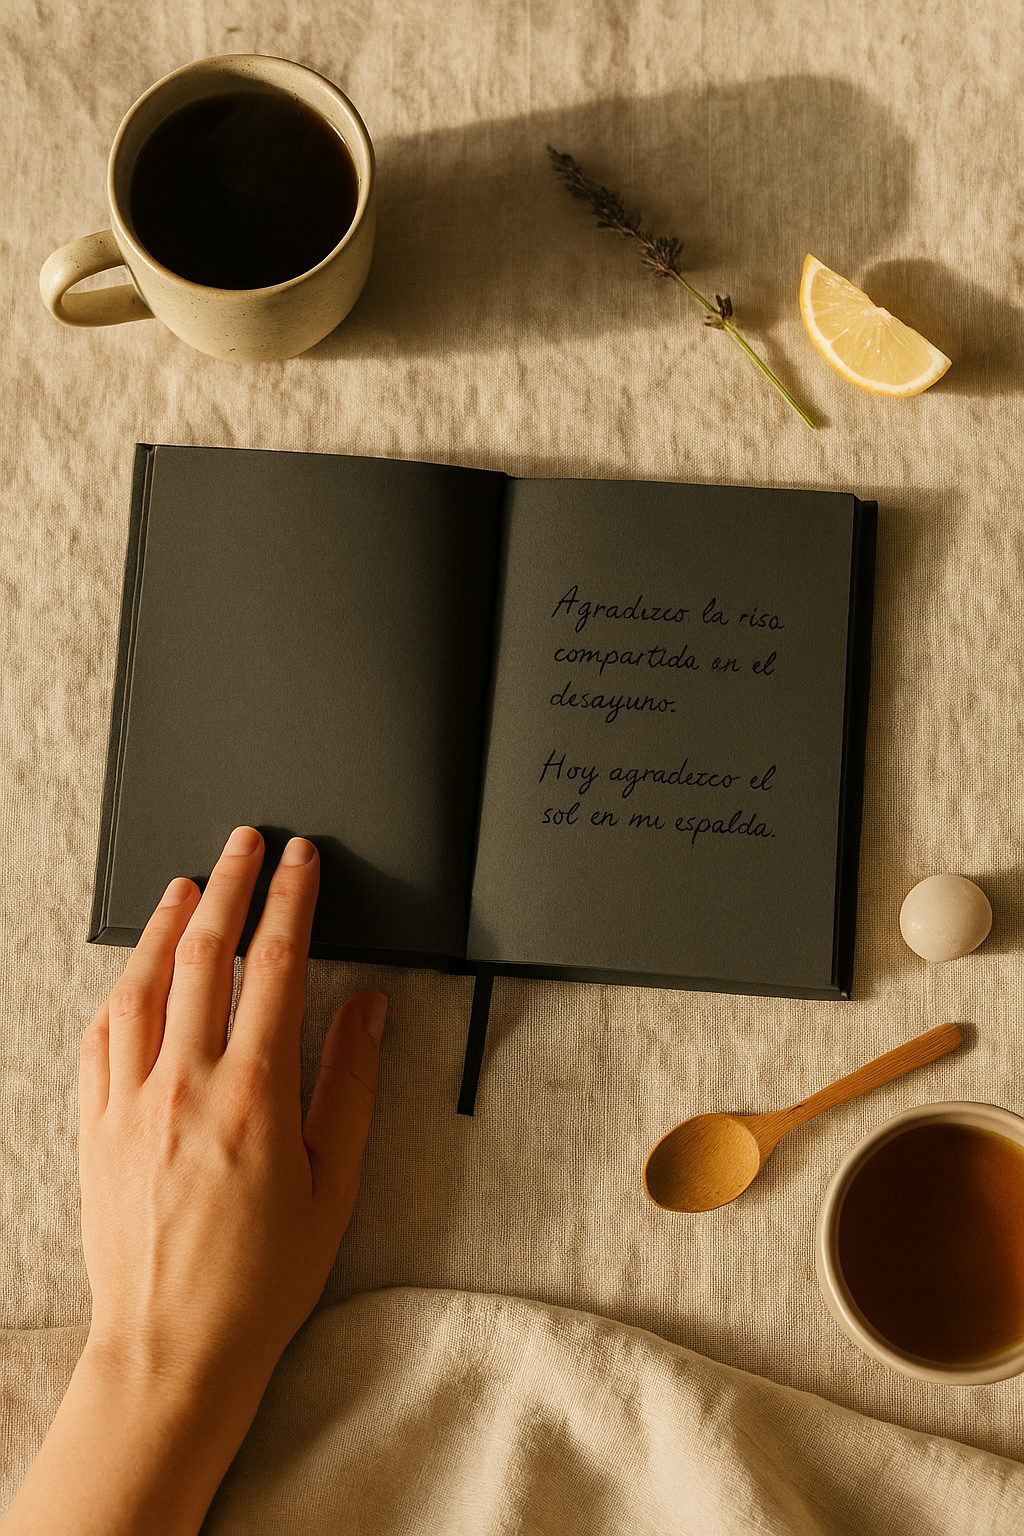 Agradizco la risa
compartida en el
desayuno.
Hoy agradezco el
sol en mi espalda.